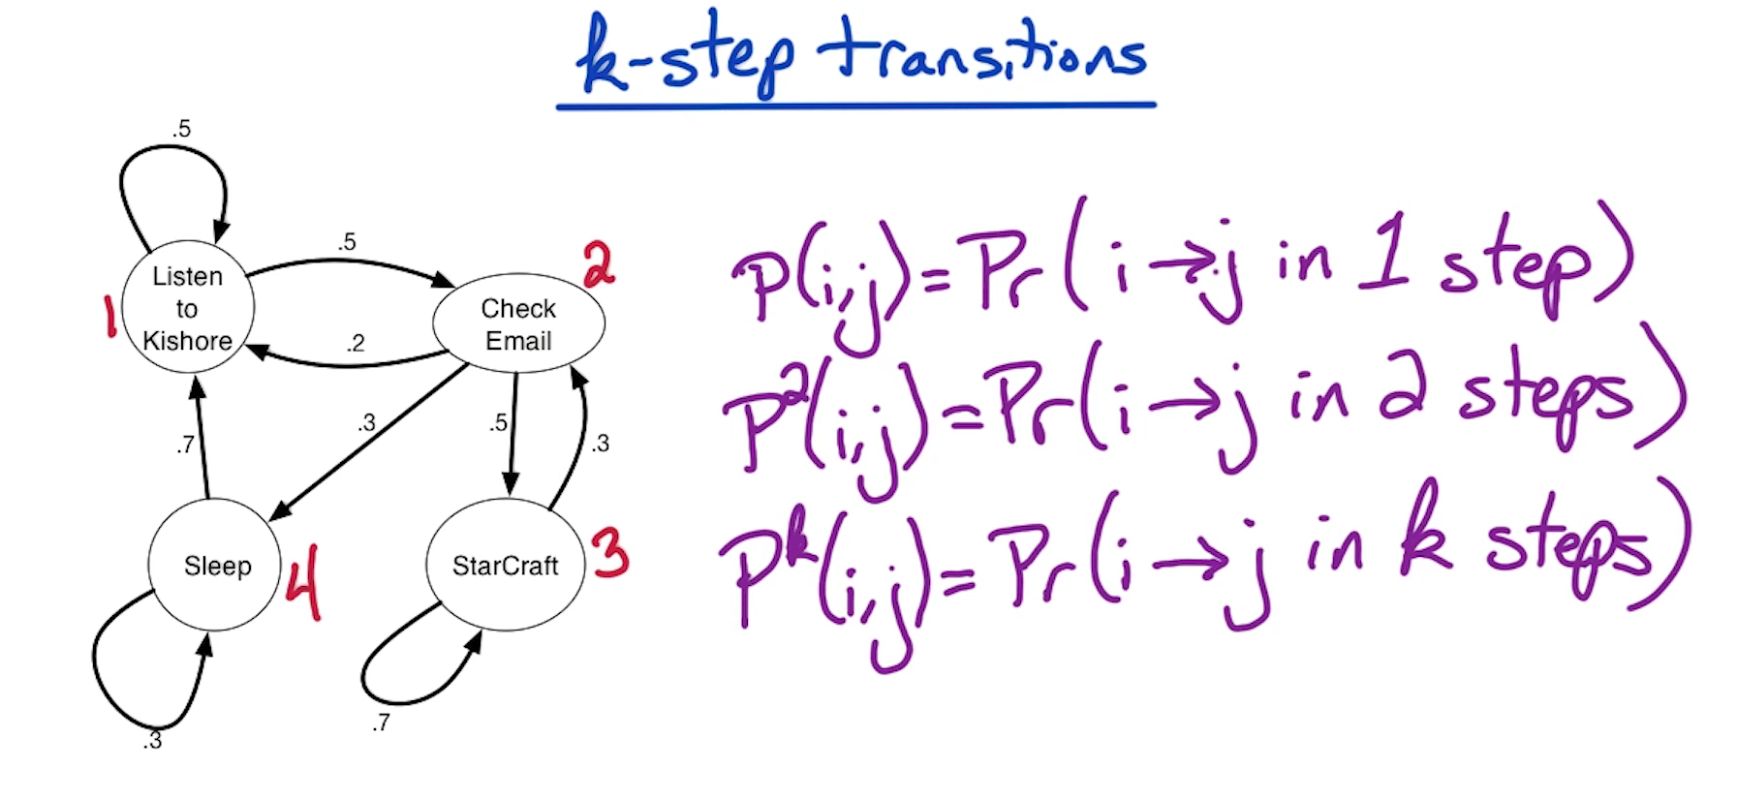 k-step transitions
.5
.5
Listen
to
Kishore
1
Check
Email
2
.2
.3
.5
.3
.7
Sleep
4
StarCraft
3
.7
.3
P(i,j) = Pr(i→j in 1 step)
P²(i,j) = Pr(i→j in 2 steps)
Pᵏ(i,j) = Pr(i→j in k steps)